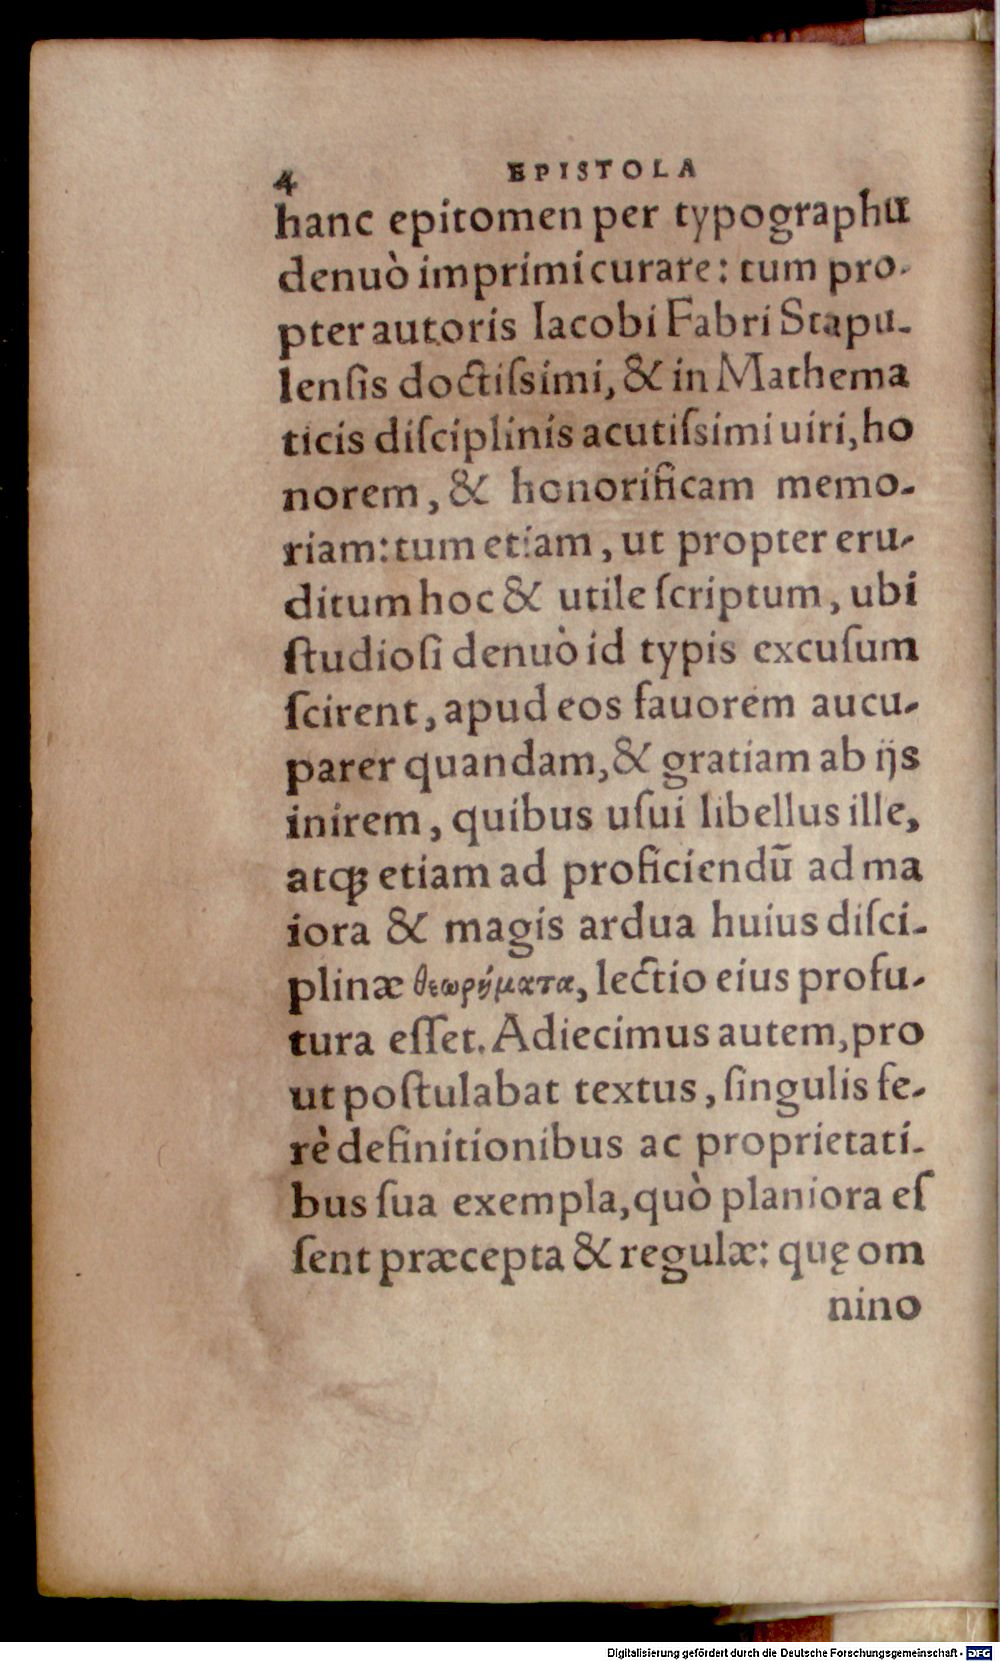 4 EPISTOLA
hanc epitomen per typographũ
denuò imprimi curare: tum pro-
pter autoris Iacobi Fabri Stapu-
lenſis doctiſsimi, & in Mathema
ticis diſciplinis acutiſsimi uiri, ho
norem, & honorificam memo-
riam: tum etiam, ut propter eru-
ditum hoc & utile ſcriptum, ubi
ſtudioſi denuò id typis excuſum
ſcirent, apud eos fauorem aucu-
parer quandam, & gratiam ab ijs
inirem, quibus uſui libellus ille,
atqꝫ etiam ad proficiendũ ad ma
iora & magis ardua huius diſci-
plinæ θεωρήματα, lectio eius profu-
tura eſſet. Adiecimus autem, pro
ut poſtulabat textus, ſingulis fe-
rè definitionibus ac proprietati-
bus ſua exempla, quò planiora eſ
ſent præcepta & regulæ: quę om
nino
Digitalisierung gefördert durch die Deutsche Forschungsgemeinschaft - DFG